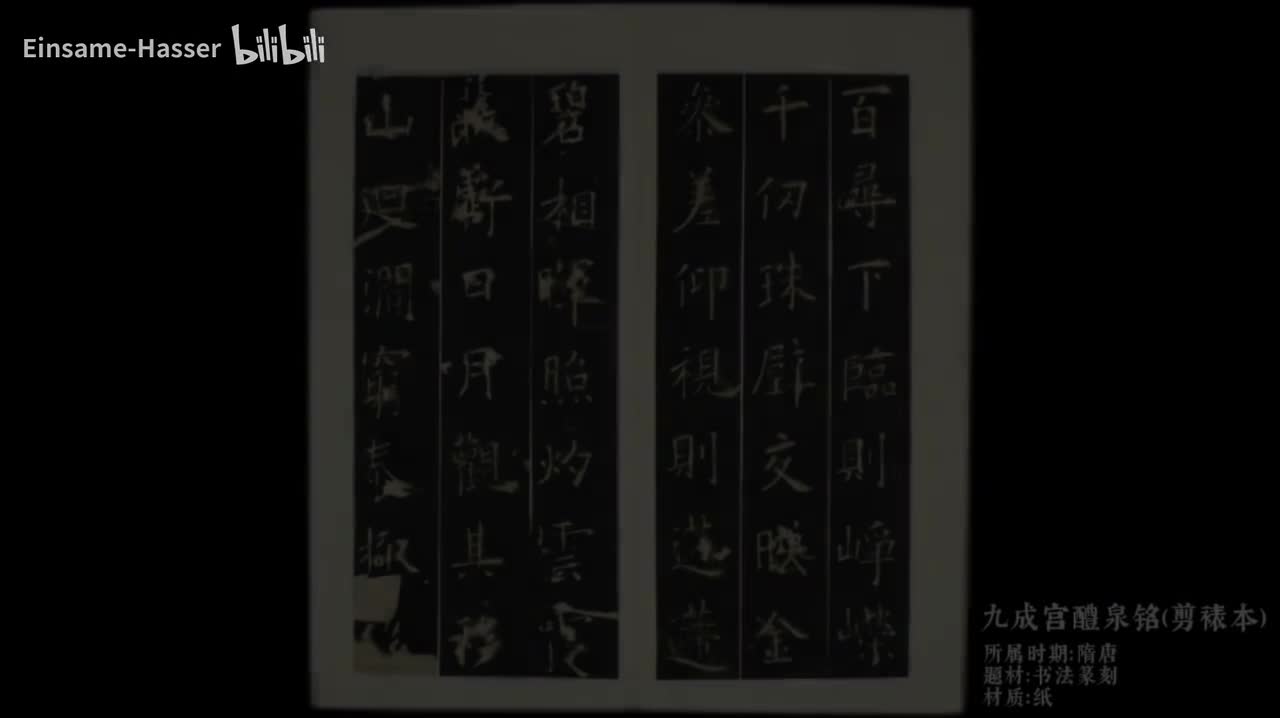 Einsame-Hasser bilibili
百尋下臨則崢嶸
千仞珠壁交暎金
參差仰視則迢遰
碧相暉照灼雲霞
蔽虧日月觀其移
山迴澗窮泰極
九成宫醴泉铭(剪裱本)
所属时期:隋唐
题材:书法篆刻
材质:纸